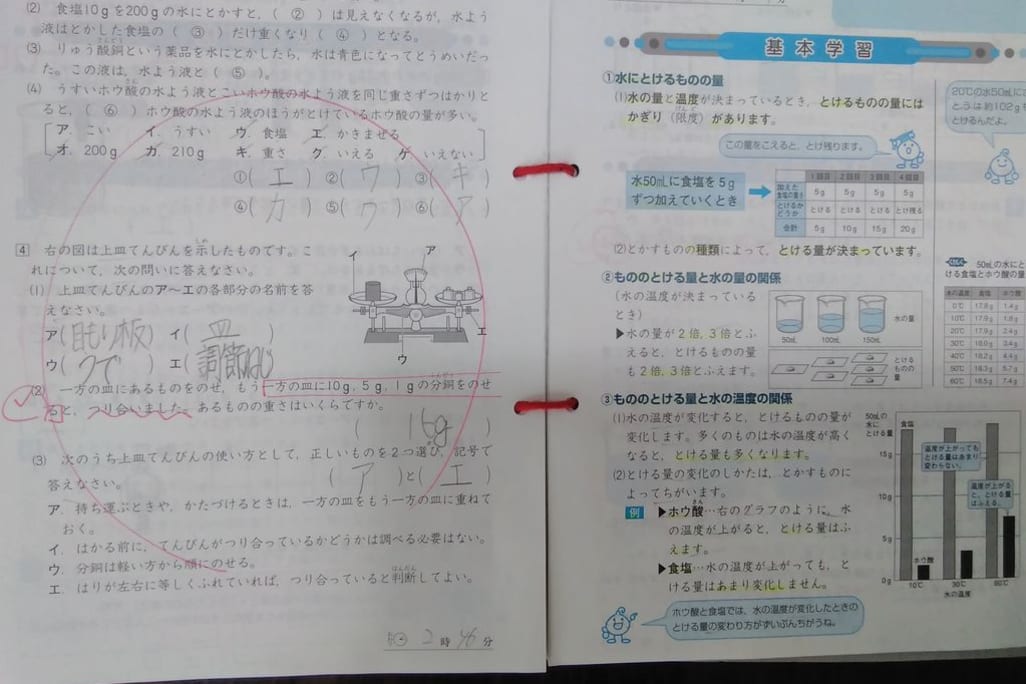 (2) 食塩10gを200gの水にとかすと,( ② )は見えなくなるが,水よう
液はとかした食塩の( ③ )だけ重くなり( ④ )となる。
(3) りゅう酸銅という薬品を水にとかしたら,水は青色になってとうめいだっ
た。この液は,水よう液と( ⑤ )。
(4) うすいホウ酸の水よう液とこいホウ酸の水よう液を同じ重さずつはかりと
ると,( ⑥ )ホウ酸の水よう液のほうがとけているホウ酸の量が多い。
ア.こい イ.うすい ウ.食塩 エ.かきまぜる
オ.200g カ.210g キ.重さ ク.いえる ケ.いえない
①( エ ) ②( ウ ) ③( キ )
④( カ ) ⑤( ウ ) ⑥( ア )
4 右の図は上皿てんびんを示したものです。こ
れについて,次の問いに答えなさい。
(1) 上皿てんびんのア〜エの各部分の名前を答
えなさい。
ア(目もり板) イ( 皿 )
ウ( うで ) エ(調節ねじ)
イ ア エ ウ
(2) 一方の皿にあるものをのせ,もう一方の皿に10g,5g,1gの分銅をのせ
ると,つり合いました。あるものの重さはいくらですか。
( 16g )
(3) 次のうち上皿てんびんの使い方として,正しいものを2つ選び,記号で
答えなさい。 ( ア )と( エ )
ア.持ち運ぶときや,かたづけるときは,一方の皿をもう一方の皿に重ねて
おく。
イ.はかる前に,てんびんがつり合っているかどうかは調べる必要はない。
ウ.分銅は軽い方から順にのせる。
エ.はりが左右に等しくふれていれば,つり合っていると判断してよい。
2時46分
基本学習
①水にとけるものの量
(1)水の量と温度が決まっているとき,とけるものの量には
かぎり(限度)があります。
この量をこえると,とけ残ります。
20℃の水50mLに
とうは約102g
とけるんだよ。
水50mLに食塩を5g
ずつ加えていくとき
1回目 2回目 3回目 4回目
加えた食塩の量 5g 5g 5g 5g
とけるかどうか とける とける とける とけ残る
合計 5g 10g 15g 20g
(2)とかすものの種類によって,とける量が決まっています。
②もののとける量と水の量の関係
(水の温度が決まっている
とき)
▶水の量が2倍,3倍とふ
えると,とけるものの量
も2倍,3倍とふえます。
50mL 100mL 150mL
水の量
とける
ものの量
50mLの水にと
ける食塩とホウ酸の量
水の温度 食塩 ホウ酸
0℃ 17.8g 1.4g
10℃ 17.9g 1.8g
20℃ 17.9g 2.4g
30℃ 18.0g 3.4g
40℃ 18.2g 4.4g
50℃ 18.3g 5.7g
60℃ 18.5g 7.4g
③もののとける量と水の温度の関係
(1)水の温度が変化すると,とけるものの量が
変化します。多くのものは水の温度が高く
なると,とける量も多くなります。
(2)とける量の変化のしかたは,とかすものに
よってちがいます。
例 ▶ホウ酸…右のグラフのように,水
の温度が上がると,とける量はふ
えます。
▶食塩…水の温度が上がっても,と
ける量はあまり変化しません。
ホウ酸と食塩では,水の温度が変化したときの
とける量の変わり方がずいぶんちがうね。
50mLの
水に
とける量
食塩
温度が上がっても
とける量はあまり
変わらない。
温度が上がる
と,とける量
はふえる。
15g
10g
5g
0g
ホウ酸
10℃ 30℃ 60℃
水の温度